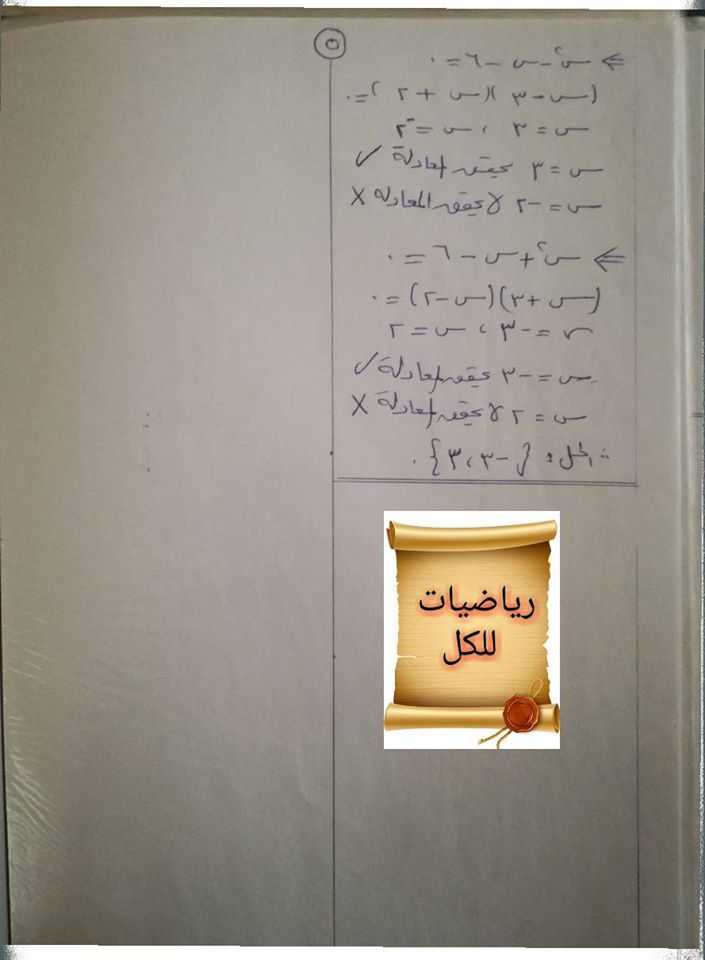 ٥
⇐ س٢ - س - ٦ = ٠
(س - ٣)(س + ٢) = ٠
س = ٣ ، س = -٢
س = ٣ يحقق المعادلة ✓
س = -٢ لا يحقق المعادلة X
⇐ س٢ + س - ٦ = ٠
(س + ٣)(س - ٢) = ٠
س = -٣ ، س = ٢
س = -٣ يحقق المعادلة ✓
س = ٢ لا يحقق المعادلة X
∴ الحل: {-٣ ، ٣} .
رياضيات
للكل